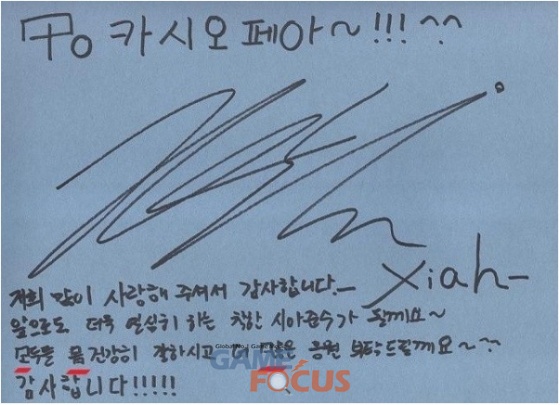 To 카시오페아~!!! ^^
Xiah-
저희 많이 사랑해 주셔서 감사합니다.-
앞으로도 더욱 열심히 하는 착한 시아준수가 될께요~
모두들 몸 건강히 잘하시고 더 많은 응원 부탁드릴께요~^^
감사합니다!!!!!
GAME FOCUS